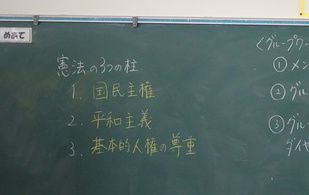 めあて
憲法の3つの柱
1. 国民主権
2. 平和主義
3. 基本的人権の尊重
<グループワー
① メン
② グル
③ グルー
ダイヤ